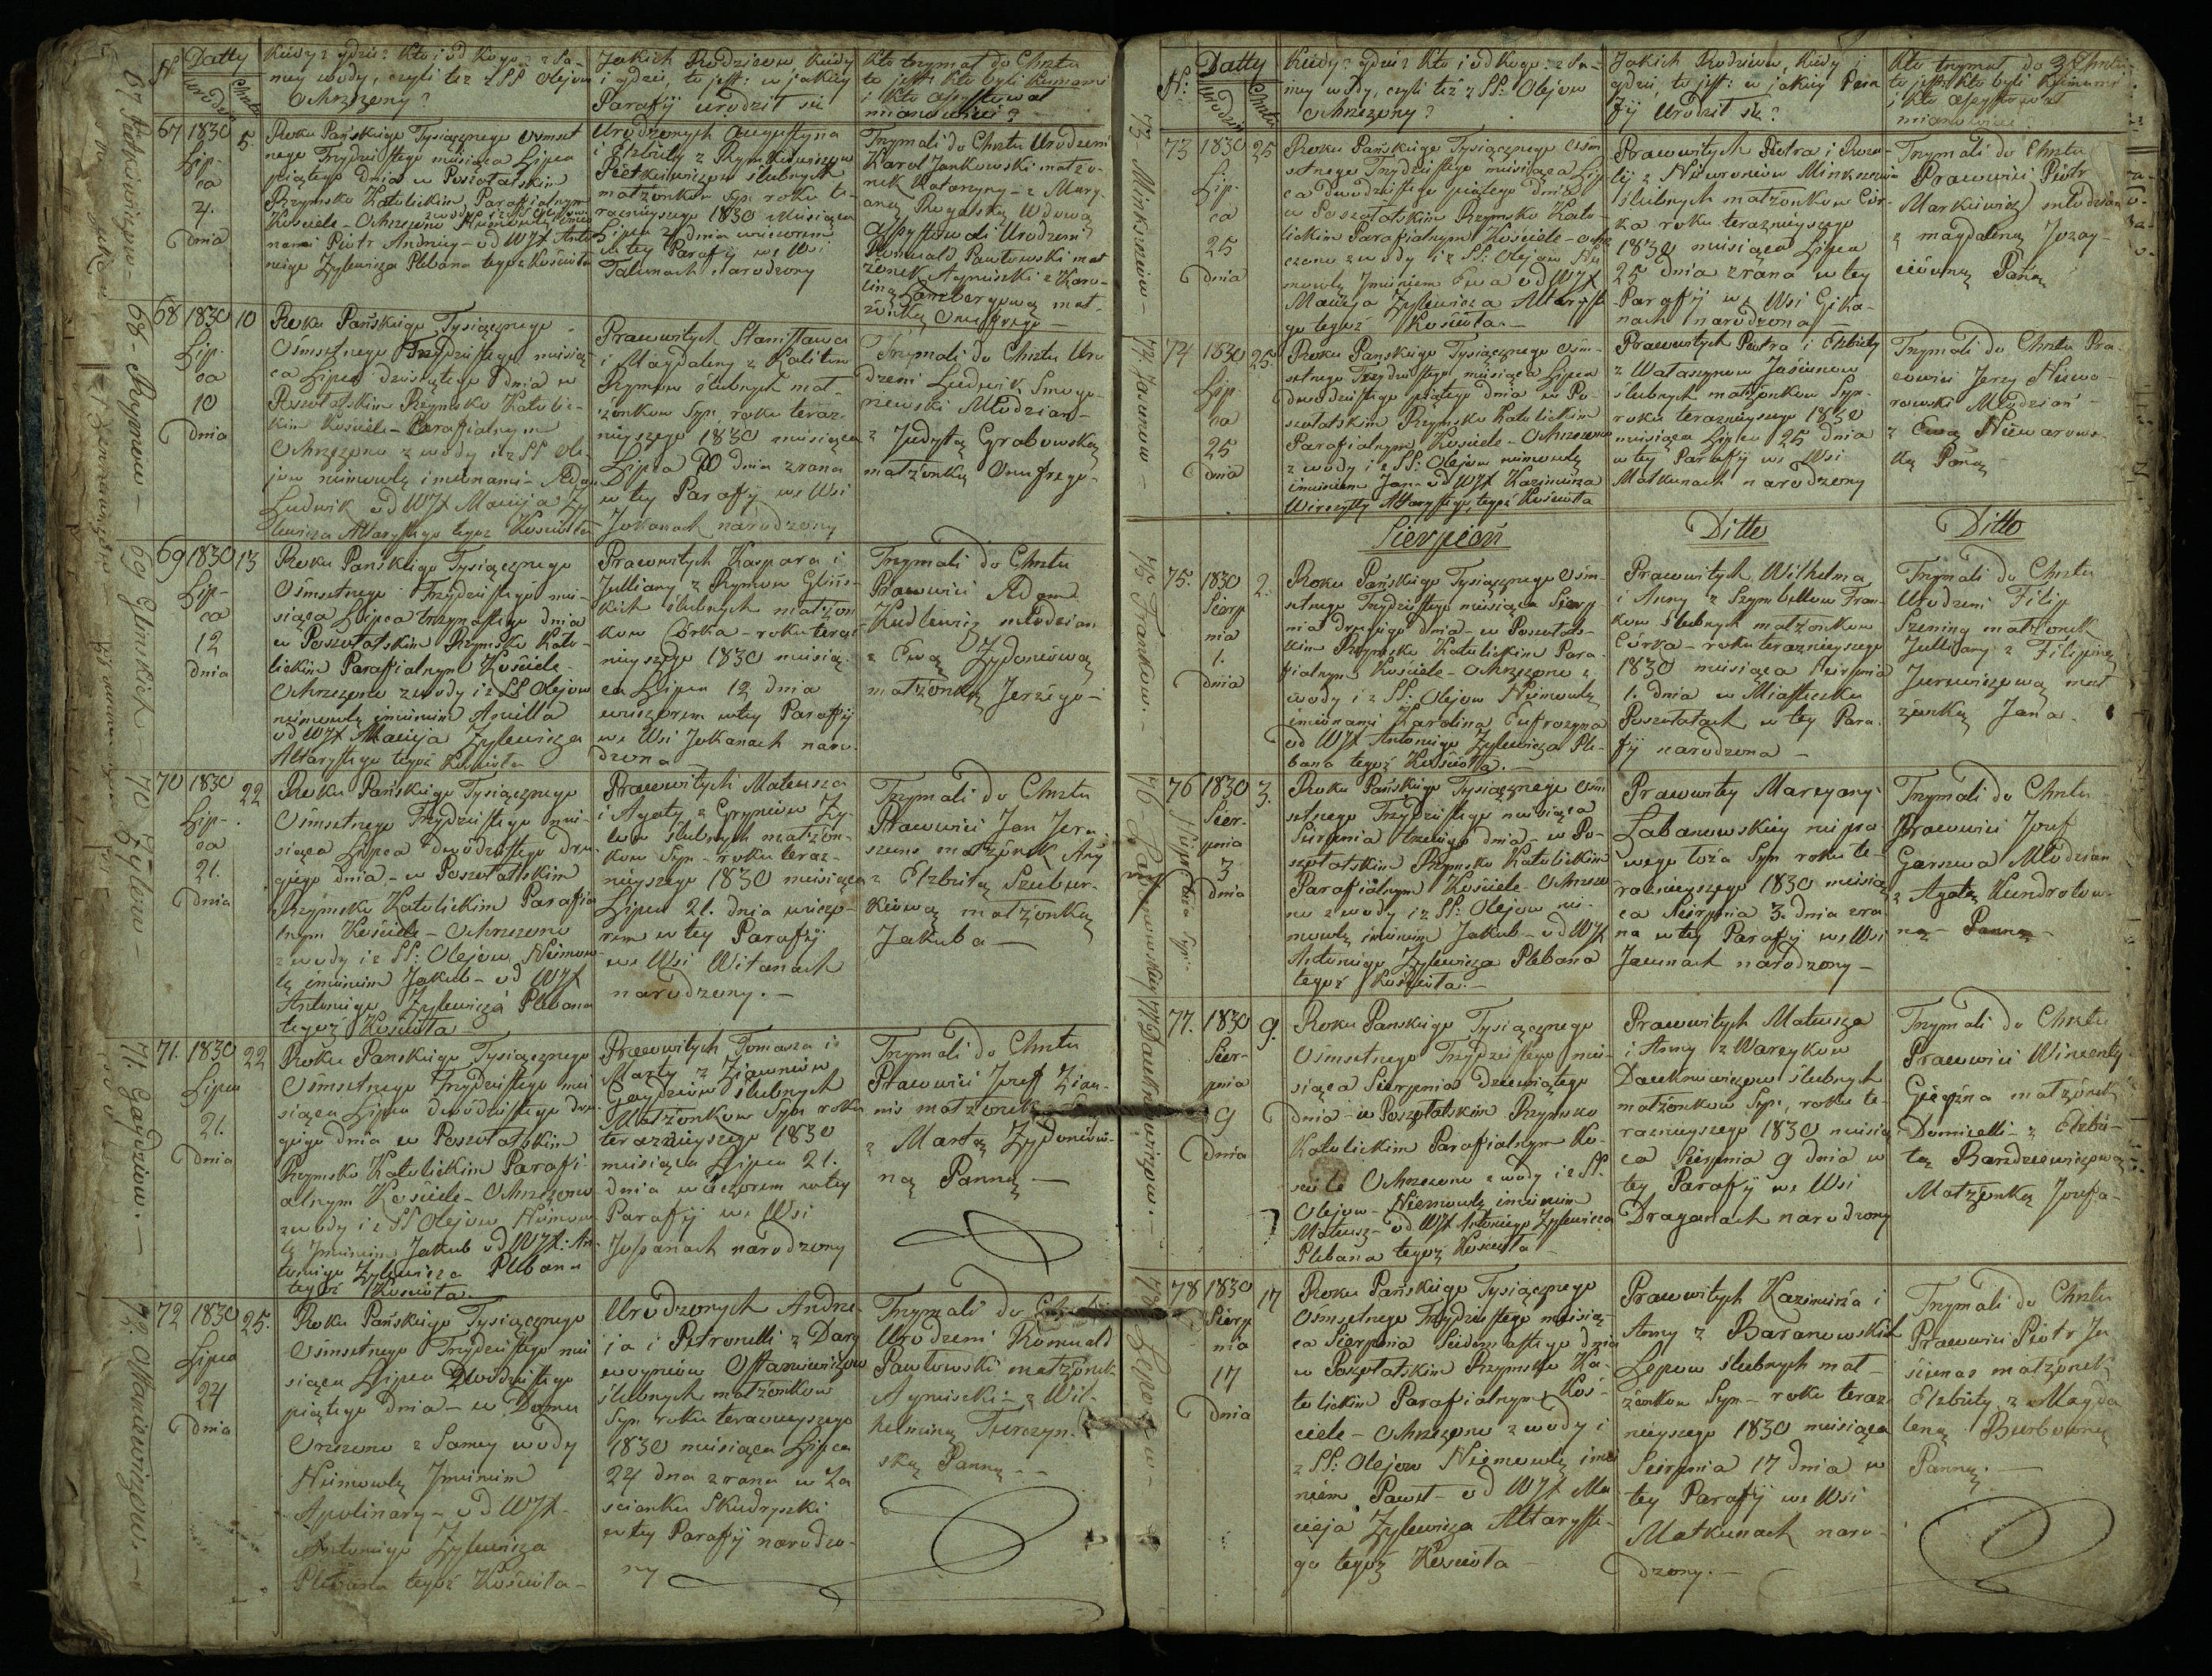 N.
Datty
Urodzin
Chrztu
Kiedy? gdzie? Kto i od kogo? z Sa-
mey wody, czyli też z SS Olejow
Ochrzczony?
Jakich Rodziców, kiedy
i gdzie, to jest: w jakiey
Parafij urodził się
Kto trzymał do Chrztu
to jest: kto byli Kumami
i kto assystował
mianowicie?
67
1830
Lip-
ca
4.
dnia
5.
Roku Pańskiego Tysiącznego Osmset
nego Trzydziestego miesiąca Lipca
piątego dnia w Poszołatskim
Rzymsko Katolickim Parafialnym
Kościele - Ochrzczono
z wody i z SS Olejow
Niemowle Imio
nami Piotr Andrzey - od WJX Anto
niego Zylewicza Plebana tegoż Kościoła
Urodzonych Augustyna
i Elzbiety z Rymkiewiczow
Pietkiewiczow ślubnych
małżonkow Syn roku te-
raznieyszego 1830 miesiąca
Lipca 4 dnia wieczorem
w tey Parafij we Wsi
Talunach narodzony
Trzymali do Chrztu Urodzeni
Karol Jankowski małżo-
nek Katarzyny - z Mary-
anną Rogalską Wdową
Assystowali Urodzeni
Romuald Pawłowski mał
żonek Agnieszki z Karo-
liną Lanzbergową mał-
żonką Onufrego -
68
1830
Lip-
ca
10
dnia
10
Roku Pańskiego Tysiącznego
Ośmsetnego Trzydziestego miesią-
ca Lipca dziesiątego dnia w
Poszołatskim Rzymsko Katolic-
kim Kościele - Parafialnym
Ochrzczono z wody i z SS Ole-
jow niemowle imionami - Adam
Ludwik od WJX Macieja Zy
lewicza Altarystego tegoż Kościoła
Prawowitych Stanisława
i Magdaleny z Kalitow
Rymow ślubnych mał-
żonkow Syn roku teraz-
nieyszego 1830 miesiąca
Lipca 10 dnia zrana
w tey Parafij we Wsi
Jokanach narodzony
Trzymali do Chrztu Uro
dzeni Ludwik Smogo-
rzewski Młodzian-
z Judytą Grabowską
małżonką Onufrego -
69
1830
Lip-
ca
12
dnia
13
Roku Pańskiego Tysiącznego
Ośmsetnego Trzydziestego mie-
siąca Lipca trzynastego dnia
w Poszołatskim Rzymsko Kato-
lickim Parafialnym Kościele -
Ochrzczono z wody i z SS Olejow
niemowle imieniem Aniella
od WJX Macieja Zylewicza
Altarystego tegoż Kościoła
Prawowitych Kaspara i
Julliany z Rymow Glins-
kich ślubnych małżon
kow Córka - roku teraz
nieyszego 1830 miesią-
ca Lipca 12 dnia
wieczorem w tey Parafij
we Wsi Jokanach naro-
dzona
Trzymali do Chrztu
Prawowici Adam
Kudlewicz młodzian
z Ewą Zydoniową
małżonką Jerzego -
70
1830
Lip-
ca
21.
dnia
22
Roku Pańskiego Tysiącznego
Ośmsetnego Trzydziestego mie-
siąca Lipca dwódziestego dru-
giego dnia - w Poszołatskim
Rzymsko Katolickim Parafia
lnym Kościele - Ochrzczono
z wody i z SS: Olejow Niemow-
lę imieniem Jakub - od WJX
Antoniego Zylewicza Plebana
tegoż Kościoła
Prawowitych Mateusza
i Agaty z Gryniow Zy-
low ślubnych małżon-
kow Syn - roku teraz-
nieyszego 1830 miesiąca
Lipca 21. dnia wieczo-
rem w tey Parafij
we Wsi Witanach
narodzony. -
Trzymali do Chrztu
Prawowici Jan Jera-
szuno małżonek Any
z Elzbietą Szuber-
kiową małżonką
Jakuba -
71.
1830
Lipca
21.
dnia
22
Roku Pańskiego Tysiącznego
Ośmsetnego Trzydziestego mie
siąca Lipca dwódziestego dru-
giego dnia w Poszołatskim
Rzymsko Katolickim Parafi-
alnym Kościele - Ochrzczono
z wody i z SS Olejow Niemow
lę Imieniem Jakub od WJX: An-
toniego Zylewicza Plebana
tegoż Kościoła.
Prawowitych Tomasza i
Marty z Ziawniow
Gaydziow ślubnych
Małżonkow Syn roku
teraznieyszego 1830
miesiąca Lipca 21.
dnia wieczorem w tey
Parafij we Wsi
Jospanach narodzony
Trzymali do Chrztu
Prawowici Jozef Zian-
nis małżonek
z Martą Zydoniów-
ną Panną -
72
1830
Lipca
24
dnia
25.
Roku Pańskiego Tysiącznego
Ośmsetnego Trzydziestego mie
siąca Lipca Dwódziestego
piątego dnia - w Domu
Orzczono z Samey wody
Niemowlę Imieniem
Apolinary - od WJX
Antoniego Zylewicza
Plebana tegoż Kościoła -
Urodzonych Andrze-
ia i Petronelli z Dary
woyniow Ostaniewiczow
ślubnych małżonkow
Syn roku teraznieyszego
1830 miesiąca Lipca
24 dna zrana w Za
scianku Skudryszki
w tey Parafij narodzo-
ny
Trzymali do Chrztu
Urodzeni Romuald
Pawłowski małżonek
Agnieszki - z Wil-
helminą Turczyn-
ską Panną - -
67 Pietkiewiczow -
68 - Rymow -
69 Glinskich
70 Zylow -
71. Gaydziow. -
72. Ostaniewiczow. -
N:
Datty
Urodzin
Chrztu
Kiedy? gdzie? Kto i od kogo: z Sa-
mey wody, czyli też z SS: Olejow
Ochrzczony?
Jakich Rodziców, kiedy i
gdzie, to jest: w jakiey Para
fij Urodził się?
Kto trzymał do Chrztu
to jest: kto byli Kumami
i kto assystował
mianowicie?
73
1830
Lip-
ca
25
dnia
25
Roku Pańskiego Tysiącznego Ośm
setnego Trzydziestego miesiąca Lip
ca dwodziestego piątego dnia
w Poszołatskim Rzymsko Kato-
lickim Parafialnym Kościele - Ochrz
czono z wody i z SS: Olejow Nie
mowlę Imieniem Ewa od WJX
Macieja Zylewicza Altaryste-
go tegoż Kościoła. -
Prawowitych Piotra i Roza-
lij z Niewroniow Minkszniow
ślubnych małżonkow Cór-
ka roku teraznieyszego
1830 miesiąca Lipca
25 dnia zrana w tey
Parafij we Wsi Gika-
nach narodzona -
Trzymali do Chrztu
Prawowici Piotr
Markiewicz młodzian
z Magdaleną Jozay-
ciówną Panną
74
1830
Lip-
ca
25
dnia
25.
Roku Panskiego Tysiącznego Ośm-
setnego Trzydziestego miesiąca Lipca
dwodziestego piątego dnia w Po-
szołatskim Rzymsko Katolickim
Parafialnym Kościele - Ochrzczono
z wody i z SS: Olejow niemowlę
imieniem Jan - od WJX Kazimierza
Wirszyłły Altarystego tegoż Kościoła
Prawowitych Piotra i Elzbiety
z Wataszynow Jasiunow
ślubnych małżonkow Syn-
roku teraznieyszego 1830
miesiąca Lipca 25 dnia
w tey Parafij we Wsi
Matkunach narodzony
Trzymali do Chrztu Pra-
wowici Jerzy Niewa-
rowski Młodzian -
z Ewą Niewarows-
ką Panną -
Sierpień
Ditto
Ditto
75.
1830
Sierp
nia
1.
dnia
2.
Roku Pańskiego Tysiącznego Ośm-
setnego Trzydziestego miesiąca Sierp
nia drugiego dnia - w Poszołats-
kim Rzymsko Katolickim Para-
fialnym Kościele - Ochrzczono z
wody i z SS: Olejow Niemowlę
imionami Karolina Eufrozyna
od WJX Antoniego Zylewicza Ple-
bana tegoż Kościoła. -
Prawowitych Wilhelma
i Anny z Szymbellow Fran-
kow ślubnych małżonkow
Córka - roku teraznieyszego
1830 miesiąca Sierpnia
1. dnia w Miasteczku
Poszołatach w tey Para-
fij narodzona -
Trzymali do Chrztu
Urodzeni Filip
Szening małżonek
Julliany z Filipiną
Jurewiczową mał
żonką Jana.
76
1830
Sier-
pnia
3
dnia
3.
Roku Pańskiego Tysiącznego Ośm
setnego Trzydziestego miesiąca
Sierpnia trzeciego dnia - w Po-
szołatskim Rzymsko Katolickim
Parafialnym Kościele - Ochrzczo
no z wody i z SS: Olejow nie-
mowlę imieniem Jakub - od WJX
Antoniego Zylewicza Plebana
tegoż Kościoła. -
Prawowitey Maryany
Labanowskiey niepra
wego łoża Syn roku te-
raznieyszego 1830 miesią
ca Sierpnia 3. dnia zra
na w tey Parafij we Wsi
Jawnach narodzony -
Trzymali do Chrztu
Prawowici Jozef
Garszwa Młodzian
z Agatą Kundrotow-
ną - Panną -
77.
1830
Sier-
pnia
9
dnia
9.
Roku Panskiego Tysiącznego
Ośmsetnego Trzydziestego mie-
siąca Sierpnia dziewiątego
dnia - w Poszołatskim Rzymsko
Katolickim Parafialnym Ko-
sciele Ochrzczono z wody i z SS.
Olejow - Niemowlę imieniem
Mateusz - od WJX Antoniego Zylewicza
Plebana tegoż Kościoła -
Prawowitych Mateusza
i Anny z Warzykow
Daukniewiczow ślubnych
małżonkow Syn, roku te-
raznieyszego 1830 miesią
ca Sierpnia 9 dnia w
tey Parafij we Wsi
Draganach narodzony
Trzymali do Chrztu
Prawowici Wincenty
małżonek
Domicelli - z Elzbie-
tą Bardziewiczową
Małżonką Jozefa -
78
1830
Sierp
nia
17
dnia
17
Roku Pańskiego Tysiącznego
Ośmsetnego Trzydziestego miesią-
ca Sierpnia Siedemnastego dnia
w Poszołatskim Rzymsko Ka-
tolickim Parafialnym Koś-
ciele - Ochrzczono z wody i
z SS: Olejow Niemowlę imie
niem Paweł od WJX Ma
cieja Zylewicza Altaryste-
go tegoż Kościoła -
Prawowitych Kazimierza i
Anny z Baranowskich
Lepow ślubnych mał-
żonkow Syn - roku teraz
nieyszego 1830 miesiąca
Sierpnia 17 dnia w
tey Parafij we Wsi
Matkunach naro-
dzony. -
Trzymali do Chrztu
Prawowici Piotr Ja
siunas małżonek
Elzbiety z Magda
leną Burbowną
Panną. -
73 - Minkszniow -
74. Jasiunow -
75 Frankow. -
76 - Labanowskiey
77. Daukniewiczow. -
78. Lepow -